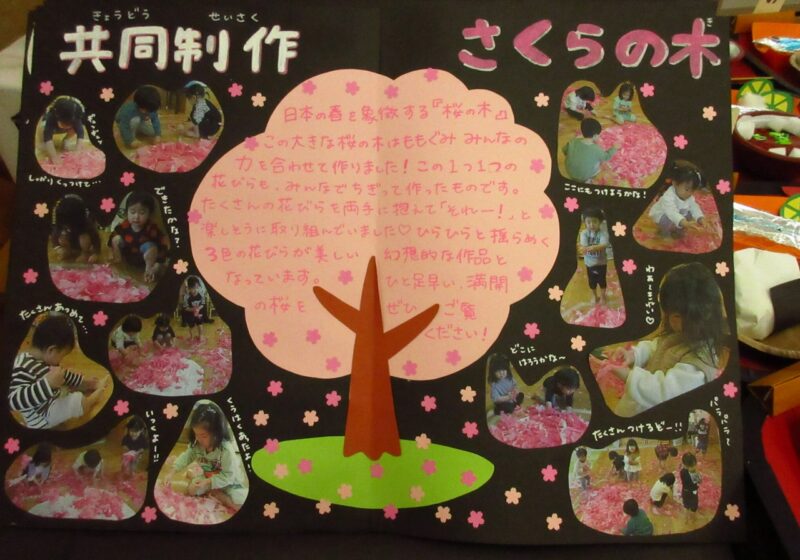 きょうどう せいさく
共同制作
き
さくらの木
日本の春を象徴する『桜の木』
この大きな桜の木はももぐみ みんなの
力を合わせて作りました！この1つ1つの
花びらも、みんなでちぎって作ったものです。
たくさんの花びらを両手に抱えて「それー！」と
楽しそうに取り組んでいました♡ひらひらと揺らめく
3色の花びらが美しい 幻想的な作品と
なっています。 ひと足早い、満開
の桜を ぜひ ご覧
ください！
ぎゅーっ
しっかりくっつけて…
できたかな？
たくさんあつめて…
いっくよー!!
くうはくあったよ！
ここにもつけようかな！
わぁーきれい♡
どこに
はろうかな〜
パラパラ〜
たくさんつけるぞー!!